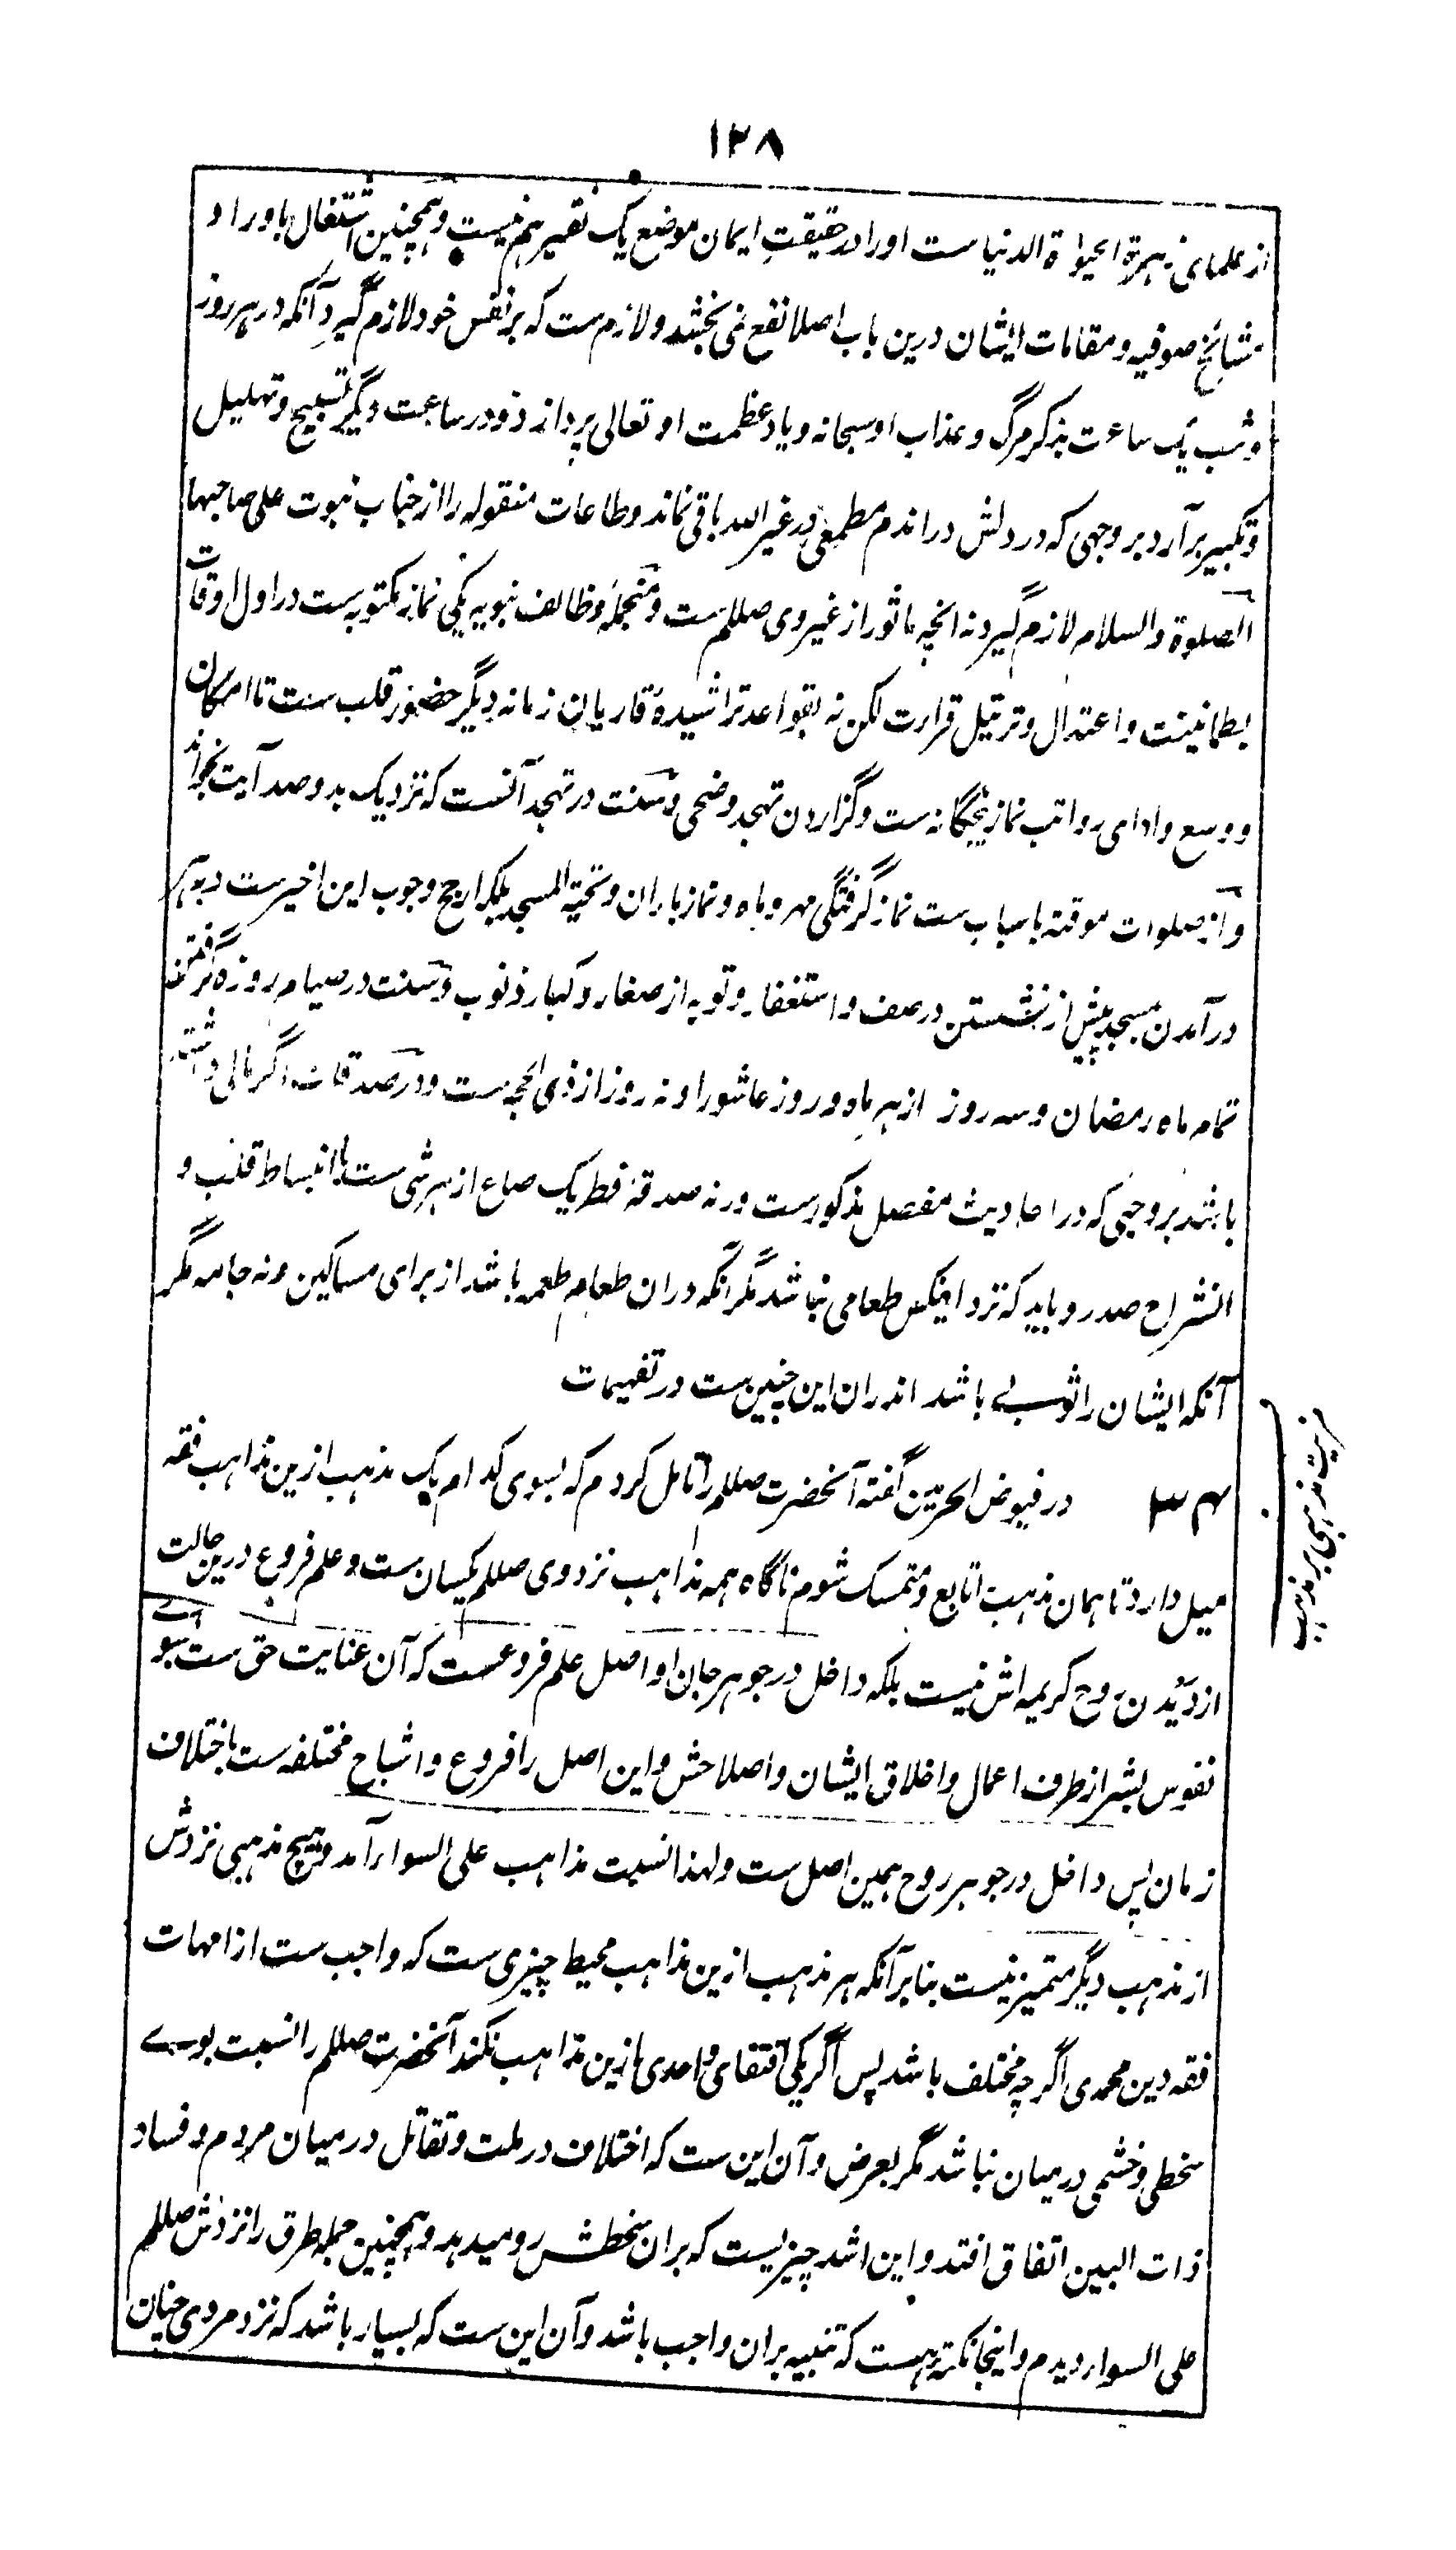 ۱۲۸
از علمای زهرة الحیواة الدنیاست او را در حقیقتِ ایمان موضع یک نقیر هم نیست و همچنین اشتغال باوراد
مشائخ صوفیه و مقامات ایشان درین باب اصلا نفع نمی بخشد و لازم ست که بر نفس خود لازم گیرد آنکه در هر روز
و شب یک ساعت بذکر مرگ و عذاب او سبحانه و یاد عظمت او تعالی پردازد و در ساعت دیگر تسبیح و تهلیل
و تکبیر برآرد بر وجهی که در دلش دراندم مطمعی در غیر الله باقی نماند و طاعات منقوله را از جناب نبوت علی صاحبها
الصلوة والسلام لازم گیرد نه انچه ماثور از غیر وی صللم ست و منجملهٔ وظائف نبویه یکی نماز مکتوبه ست در اول اوقات
بطمانینت و اعتدال و ترتیل قرارت لکن نه بقواعد تراشیدهٔ قاریان زمانه دیگر حضور قلب ست تا امکان
و وسع و ادای رواتب نماز پنجگانه ست و گزاردن تهجد و ضحی و سنت در تهجد آنست که نزدیک بدو صد آیت بخواند
و از صلوات موقته باسباب ست نماز گرفتگی مهر و ماه و نماز باران و تحیة المسجد بلکه ارجح وجوب این اخیرست در بهر
درآمدن مسجد پیش از نشستن در صف و استغفار و توبه از صغار و کبار ذنوب و سنت در صیام روزه گرفتن
تمام ماه رمضان و سه روز از هر ماه و روز عاشورا و نه روز از ذی الحجه ست و در صدقات اگر مالی داشته
باشد بر وجهی که در احادیث مفصل مذکورست ورنه صدقهٔ فطر یک صاع از هر شی ست با انبساط قلب و
انشراح صدر و باید که نزد اینکس طعامی نباشد مگر آنکه دران طعام طعمه باشد از برای مساکین و نه جامه مگر
آنکه ایشان را ثوبے باشد اندران این چنین ست در تفهیمات
۳۴ در فیوض الحرمین گفته آنحضرت صللم را تامل کردم که بسوی کدام یک مذهب ازین مذاهب فقه
میل دارد تا همان مذهب را تابع و متمسک شوم ناگاه همه مذاهب نزد وی صللم یکسان ست و علم فروع درین حالت
از دیدن روح کریمه اش نیست بلکه داخل در جوهر جان او اصل علم فروعست که آن عنایت حق ست بسوے
نفوس بشر از طرف اعمال و اخلاق ایشان و اصلاحش و این اصل را فروع و اشباح مختلفه ست باختلاف
زمان پس داخل در جوهر روح همین اصل ست و لهذا نسبت مذاهب علی السواء آمد و هیچ مذهبی نزدش
از مذهب دیگر متمیز نیست بنابر آنکه هر مذهب ازین مذاهب محیط چیزی ست که واجب ست از امهات
فقه دین محمدی اگرچه مختلف باشد پس اگر یکی اقتفای واحدی ازین مذاهب نکند آنحضرت صللم را نسبت بوے
سخطی و خشمی درمیان نباشد مگر بعرض و آن این ست که اختلاف در ملت و تقاتل درمیان مردم و فساد
ذات البین اتفاق افتد و این اشد چیزیست که بران سخطش رو میدهد و همچنین جمله طرق را نزدش صللم
علی السواء دیدم و اینجا نکته هست که تنبیه بران واجب باشد و آن این ست که بسیار باشد که نزد مردی چنان